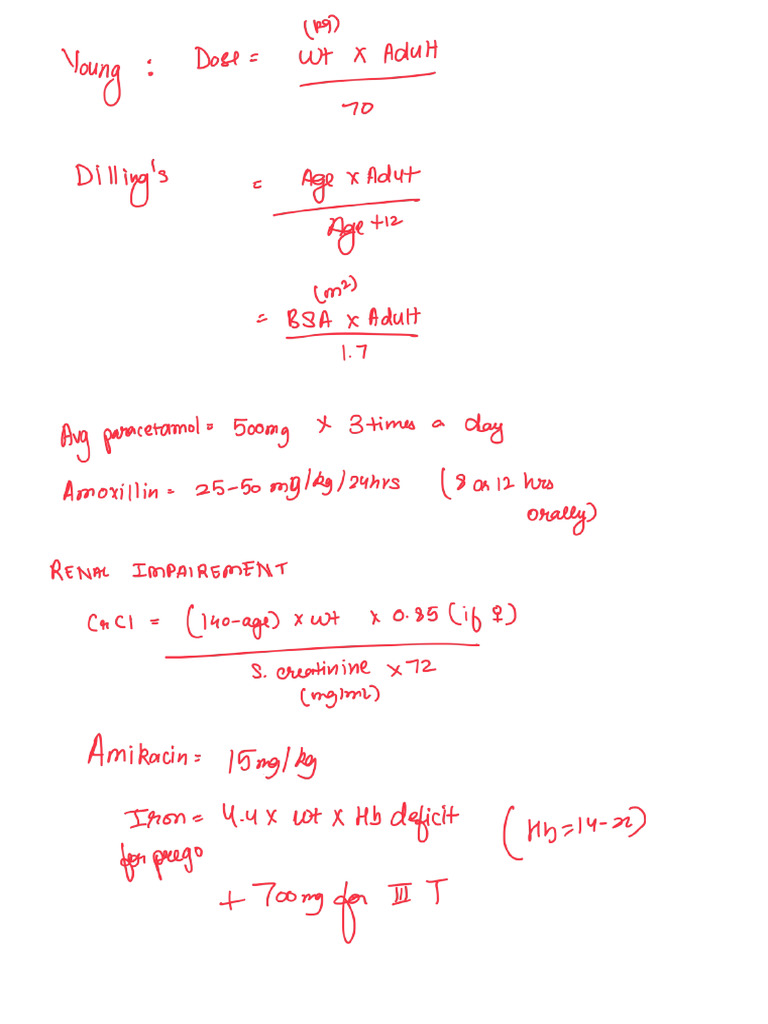 (kg)
Young : Dose = Wt x Adult
70
Dilling's = Age x Adult
Age +12
(m2)
= BSA x Adult
1.7
Avg paracetamol = 500mg x 3 times a day
Amoxillin = 25-50 mg/kg/24hrs (8 or 12 hrs
orally)
RENAL IMPAIREMENT
CrCl = (140-age) x wt x 0.85 (if ♀)
S. creatinine x 72
(mg/ml)
Amikacin = 15mg/kg
Iron = 4.4 x wt x Hb deficit (Hb=14-x)
for prego
+ 700mg for III T